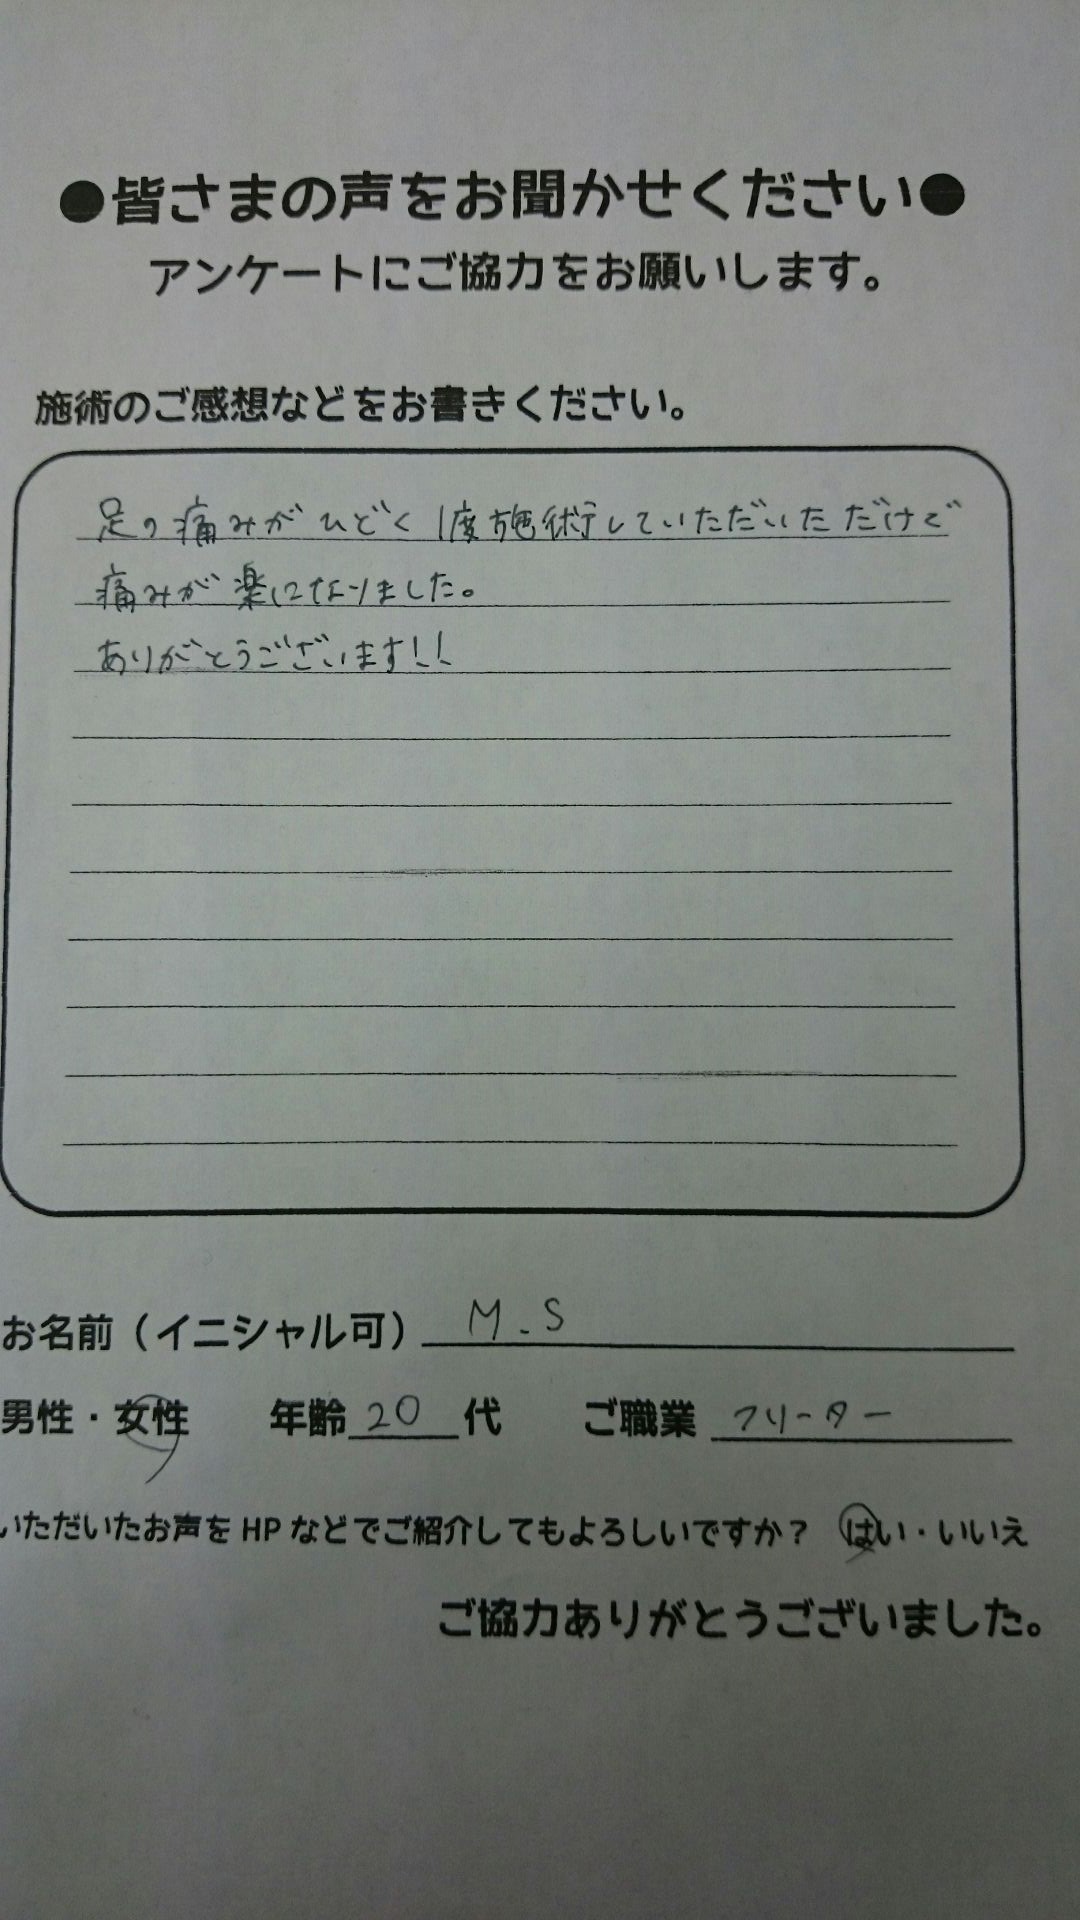 ●皆さまの声をお聞かせください●
アンケートにご協力をお願いします。
施術のご感想などをお書きください。
足の痛みがひどく1度施術していただいただけで
痛みが楽になりました。
ありがとうございます!!
お名前（イニシャル可） M.S
男性・女性 年齢 20 代 ご職業 フリーター
いただいたお声をHPなどでご紹介してもよろしいですか？ はい・いいえ
ご協力ありがとうございました。